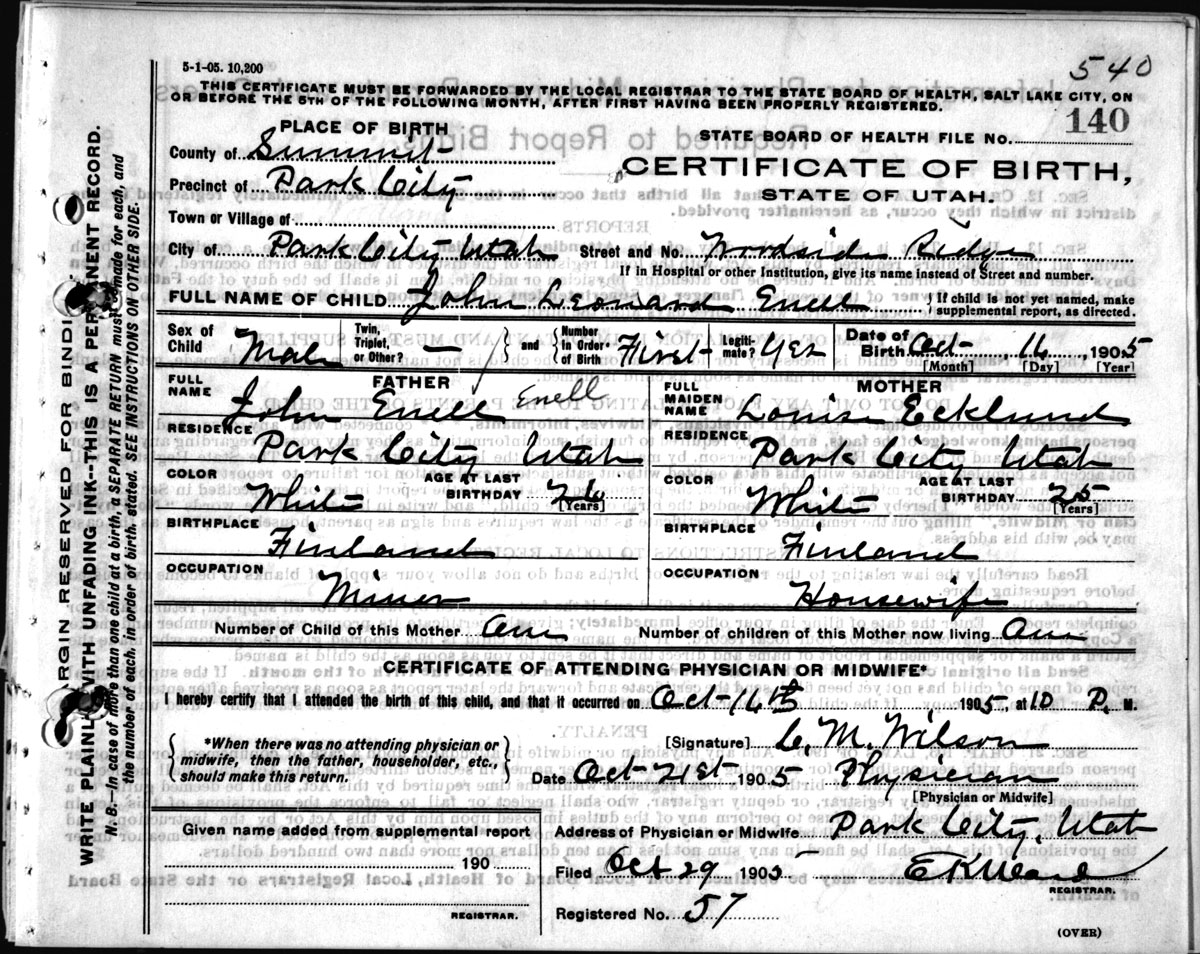 5-1-05. 10,200
540
THIS CERTIFICATE MUST BE FORWARDED BY THE LOCAL REGISTRAR TO THE STATE BOARD OF HEALTH, SALT LAKE CITY, ON
OR BEFORE THE 5TH OF THE FOLLOWING MONTH, AFTER FIRST HAVING BEEN PROPERLY REGISTERED.
PLACE OF BIRTH
STATE BOARD OF HEALTH FILE NO. 140
County of Summit
CERTIFICATE OF BIRTH,
Precinct of Park City
STATE OF UTAH.
Town or Village of
City of Park City Utah Street and No. Woodside Ridge
If in Hospital or other Institution, give its name instead of Street and number.
FULL NAME OF CHILD John Leonard Enell { If child is not yet named, make
supplemental report, as directed.
Sex of Child Male Twin, Triplet, or Other? — and Number in Order of Birth First Legitimate? Yes Date of Birth Oct 16, 1905
[Month] [Day] [Year]
FULL NAME FATHER John Enell Enell
FULL MAIDEN NAME MOTHER Louise Ecklund
RESIDENCE Park City Utah
RESIDENCE Park City Utah
COLOR White AGE AT LAST BIRTHDAY 26 [Years]
COLOR White AGE AT LAST BIRTHDAY 25 [Years]
BIRTHPLACE Finland
BIRTHPLACE Finland
OCCUPATION Miner
OCCUPATION Housewife
Number of Child of this Mother One Number of children of this Mother now living One
CERTIFICATE OF ATTENDING PHYSICIAN OR MIDWIFE*
I hereby certify that I attended the birth of this child, and that it occurred on Oct-16th 1905, at 10 P. M.
{ *When there was no attending physician or
midwife, then the father, householder, etc.,
should make this return. }
[Signature] C. M. Wilson
Date Oct 21st 1905 Physician
[Physician or Midwife]
Given name added from supplemental report
190
REGISTRAR.
Address of Physician or Midwife Park City, Utah
Filed Oct 29 1905 E K Ward
REGISTRAR.
Registered No. 57
(OVER)
RGIN RESERVED FOR BINDI
WRITE PLAINLY WITH UNFADING INK--THIS IS A PERMANENT RECORD.
N. B.—In case of more than one child at a birth, a SEPARATE RETURN must be made for each, and
the number of each, in order of birth, stated. SEE INSTRUCTIONS ON OTHER SIDE.